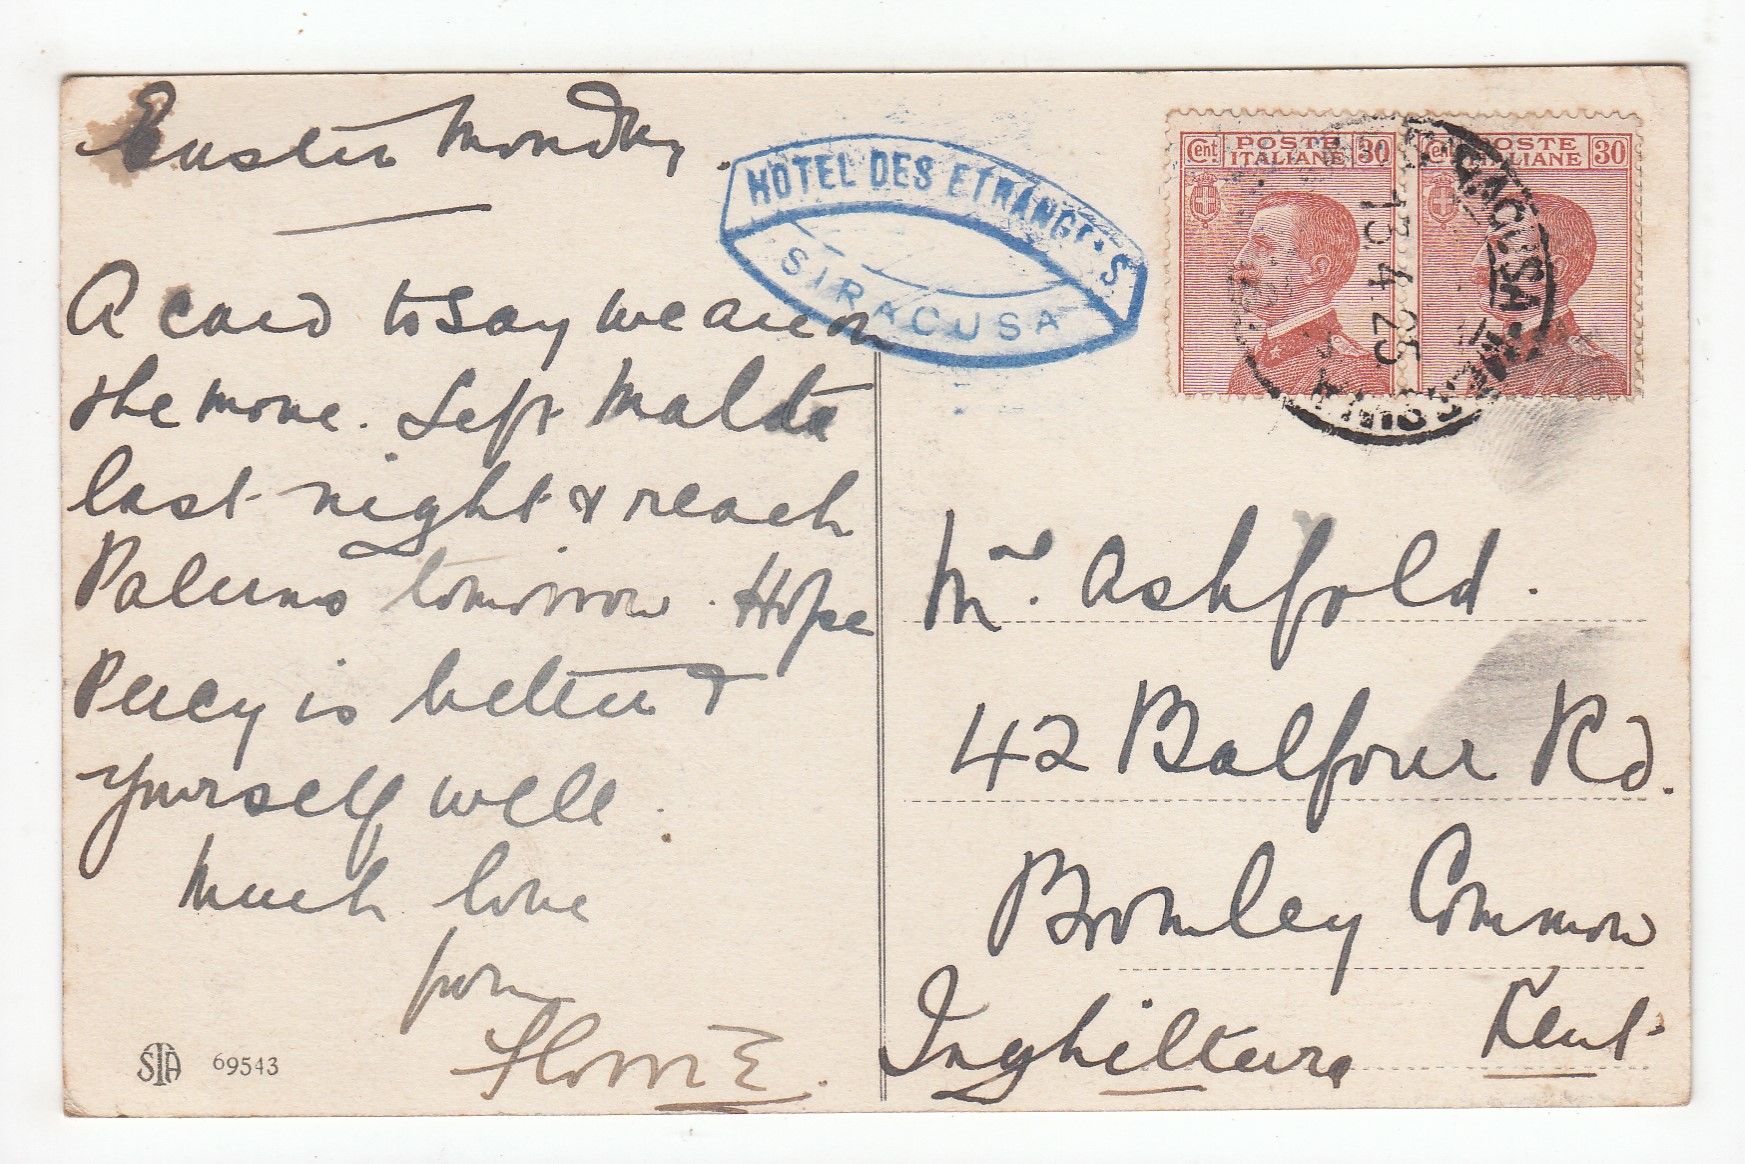 Easter Monday.
A card to say we are on
the move. Left Malta
last night & reach
Palermo tomorrow. Hope
Percy is better &
yourself well.
Much love
from
STA 69543
HOTEL DES ETRANGERS
SIRACUSA
Cent. POSTE ITALIANE 30
Cent. POSTE ITALIANE 30
SIRACUSA
13 4 25
Ashfold.
42 Balfour Rd.
Bromley Common
Kent
Inghilterra